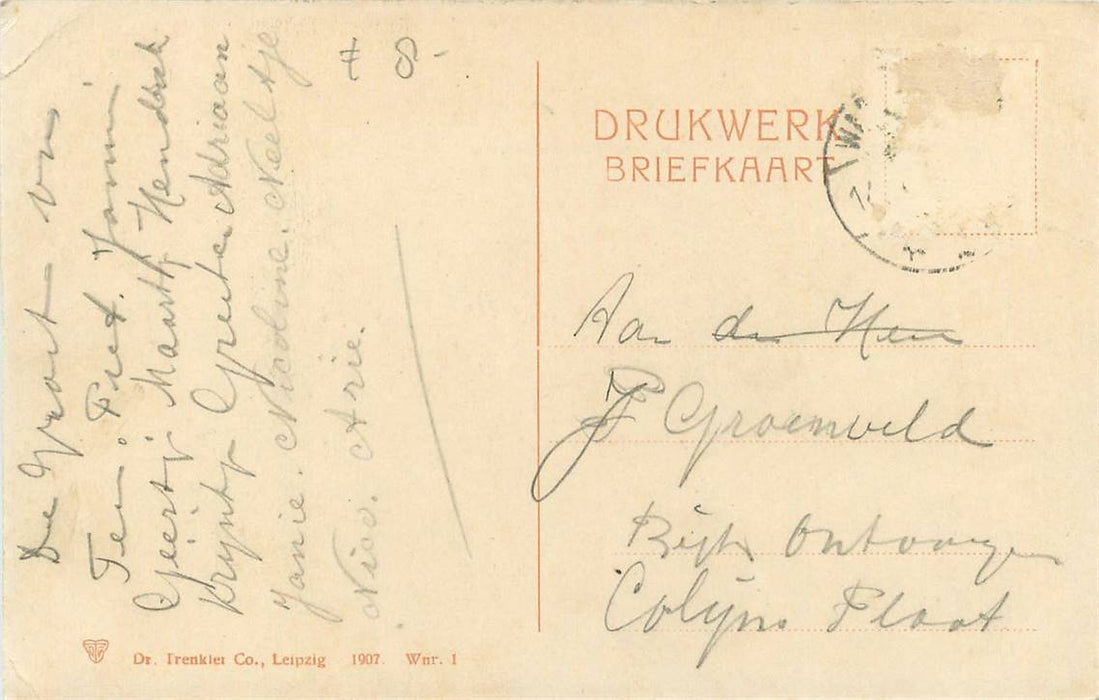 De Groit van
Teun. Piet. Janni
Geertj Maartj Hendrik
Krijntj Greeta Adriaan
Janie. Nicoline. Neeltje
Nico. Arie.
DRUKWERK
BRIEFKAART
Aan den Heer
P Groenveld
Bijk Ontvanger
Colijns Plaat
Dr. Trenkler Co., Leipzig 1907. Wnr. 1